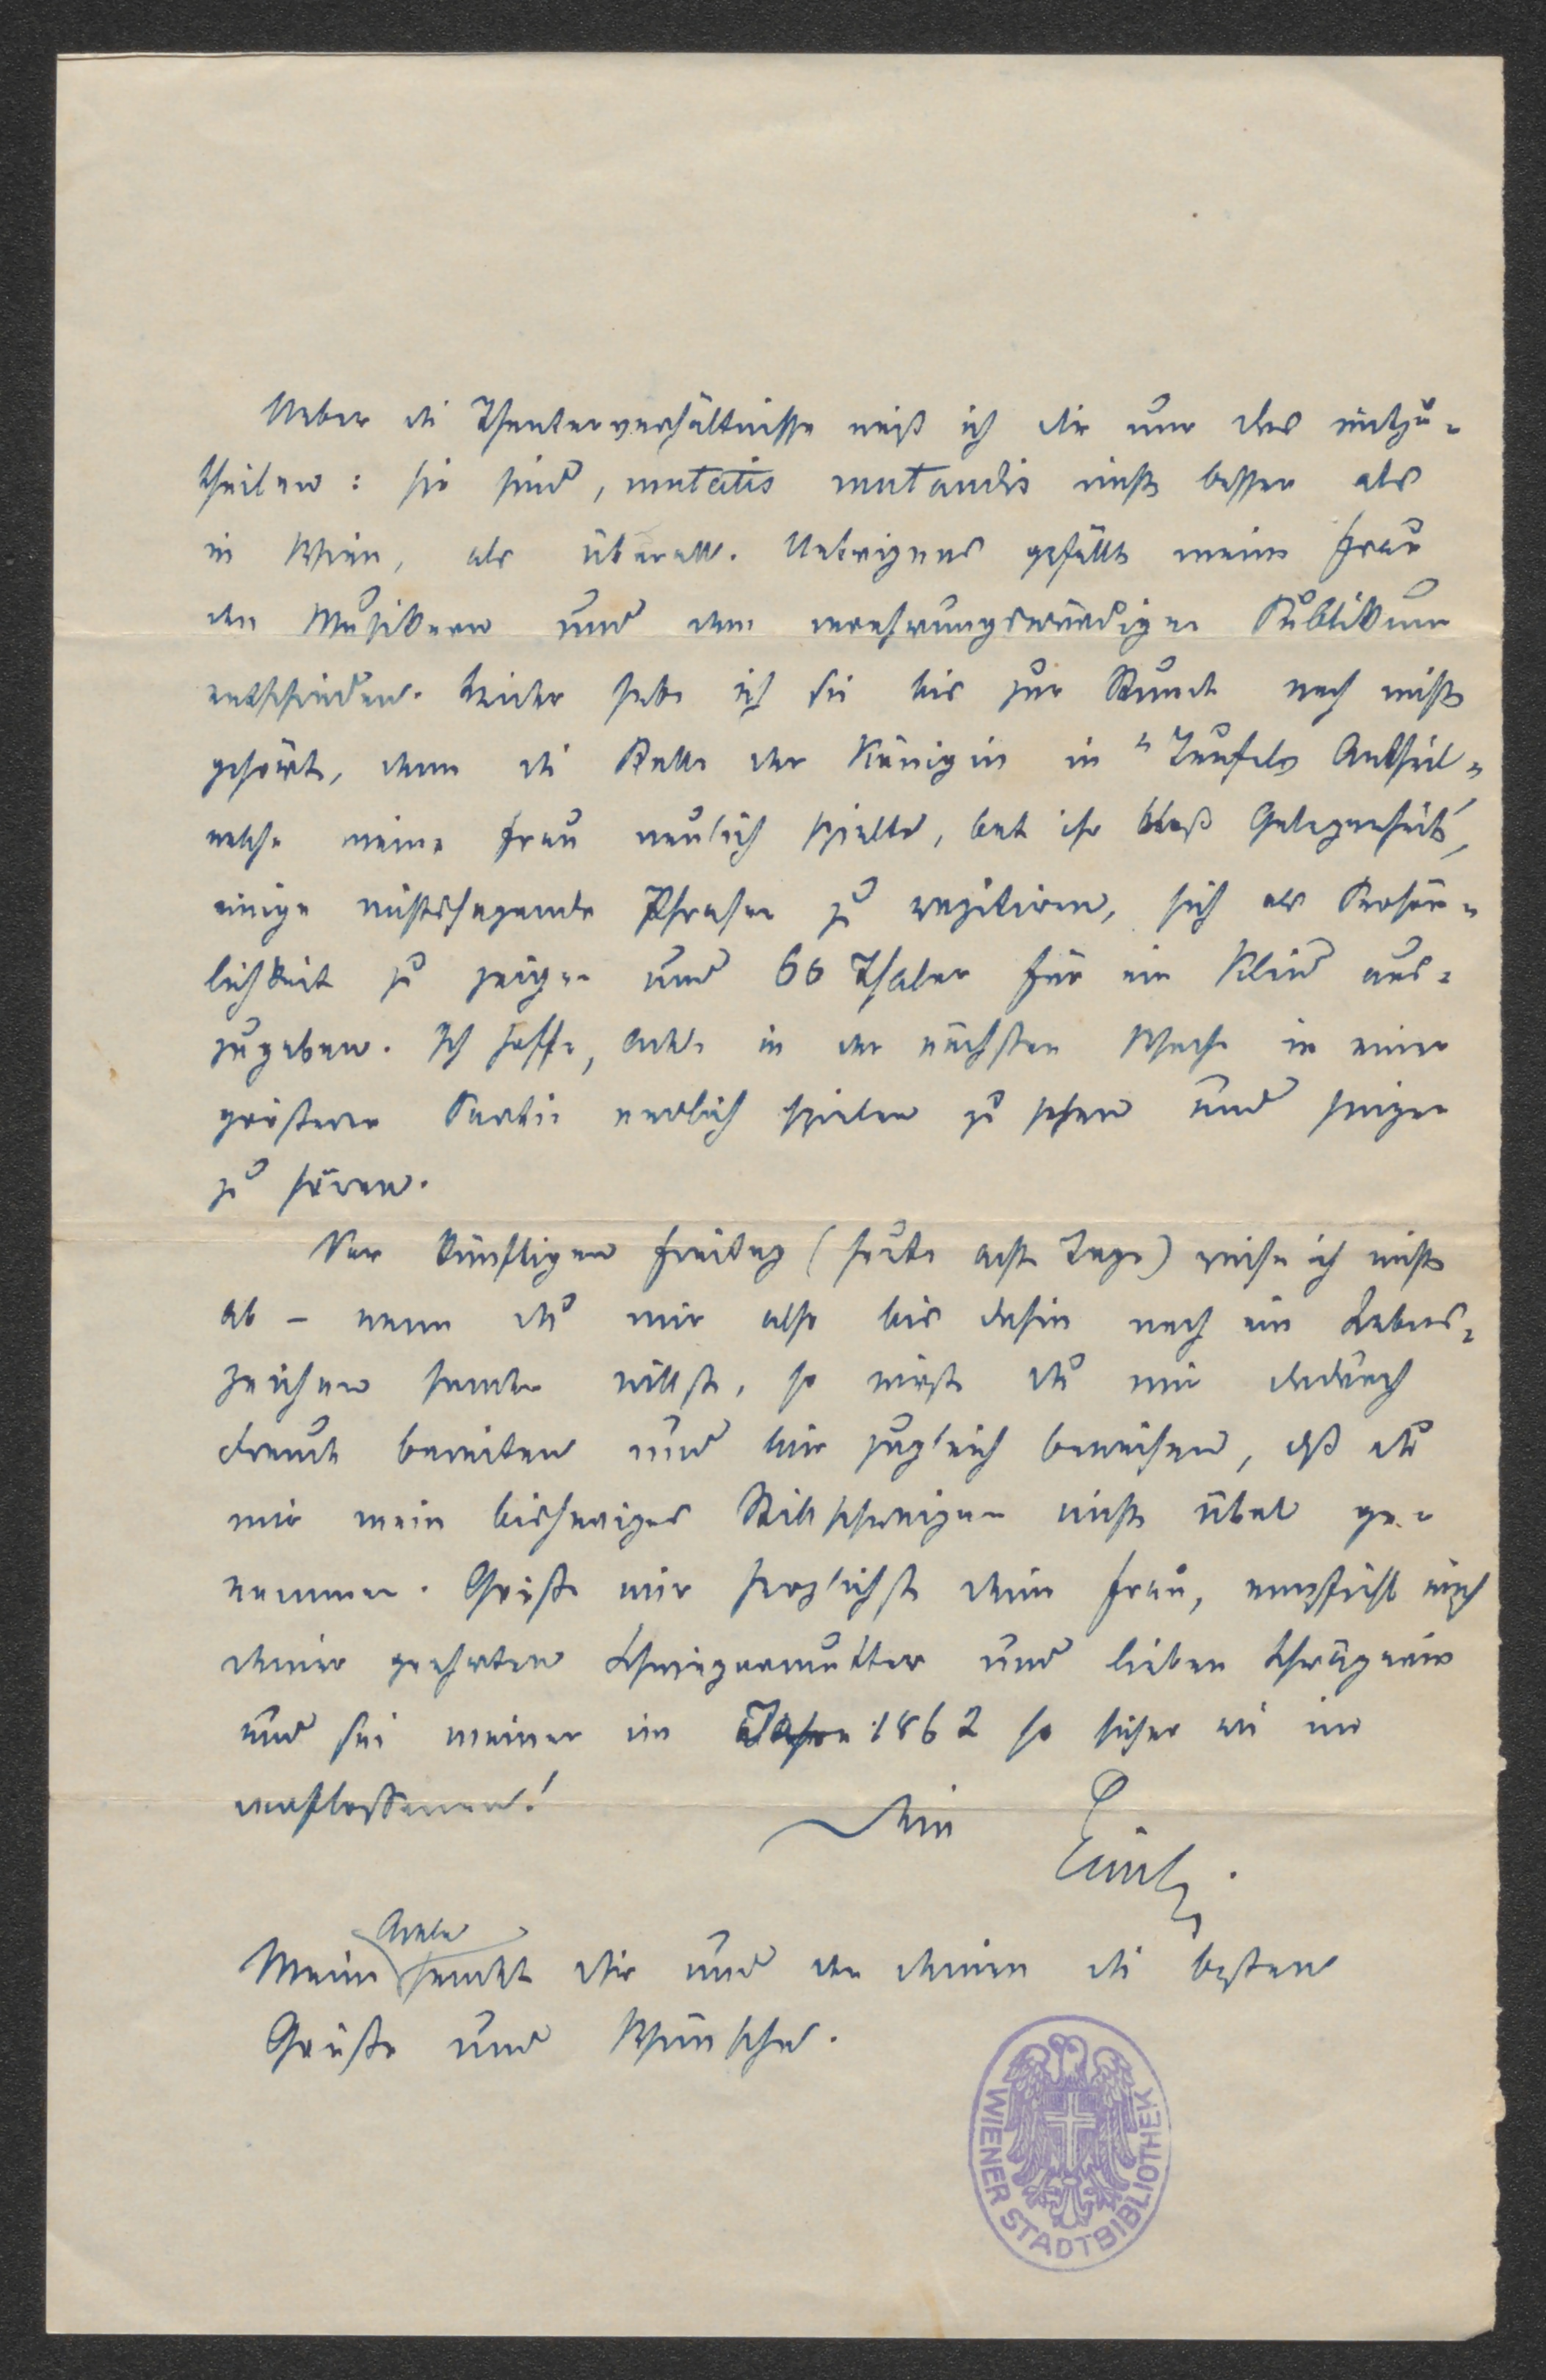 Ueber die Theaterverhältnisse weiß ich dir nur das mitzu-
theilen: sie sind, mutatis mutandis nicht besser als
in Wien, als überall. Uebrigens gefällt meine Frau
den Musikern und dem verehrungswürdigen Publikum
entschieden. Leider habe ich sie bis zur Stunde noch nicht
gehört, denn die Rolle der Königin in "Teufels Antheil"
welche meine Frau neulich spielte, bot ihr bloß Gelegenheit,
einige nichtssagende Phrasen zu rezitiren, sich als Persön-
lichkeit zu zeigen und 60 Thaler für ein Kleid aus-
zugeben. Ich hoffe, Adele in der nächsten Woche in einer
größeren Partie endlich spielen zu sehen und singen
zu hören.
Vor künftigen Freitag (heute acht Tage) reise ich nicht
ab – wenn du mir also bis dahin noch ein Lebens-
zeichen senden willst, so wirst du mir dadurch
Freude bereiten und mir zugleich beweisen, daß du
mir mein bisheriges Stillschweigen nicht übel ge-
nommen. Grüße mir herzlichst deine Frau, empfiehl mich
deiner geehrten Schwiegermutter und lieben Schwägerin
und sei meiner im Jahre 1862 so sicher wie im
verflossenen!
Dein
Emil
Adele
Meine sendet dir und den deinen die besten
Grüße und Wünsche.
WIENER STADTBIBLIOTHEK